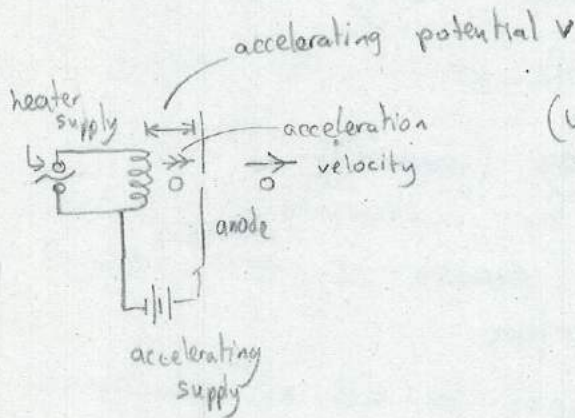 accelerating potential V
heater
supply
acceleration
velocity
anode
accelerating
supply